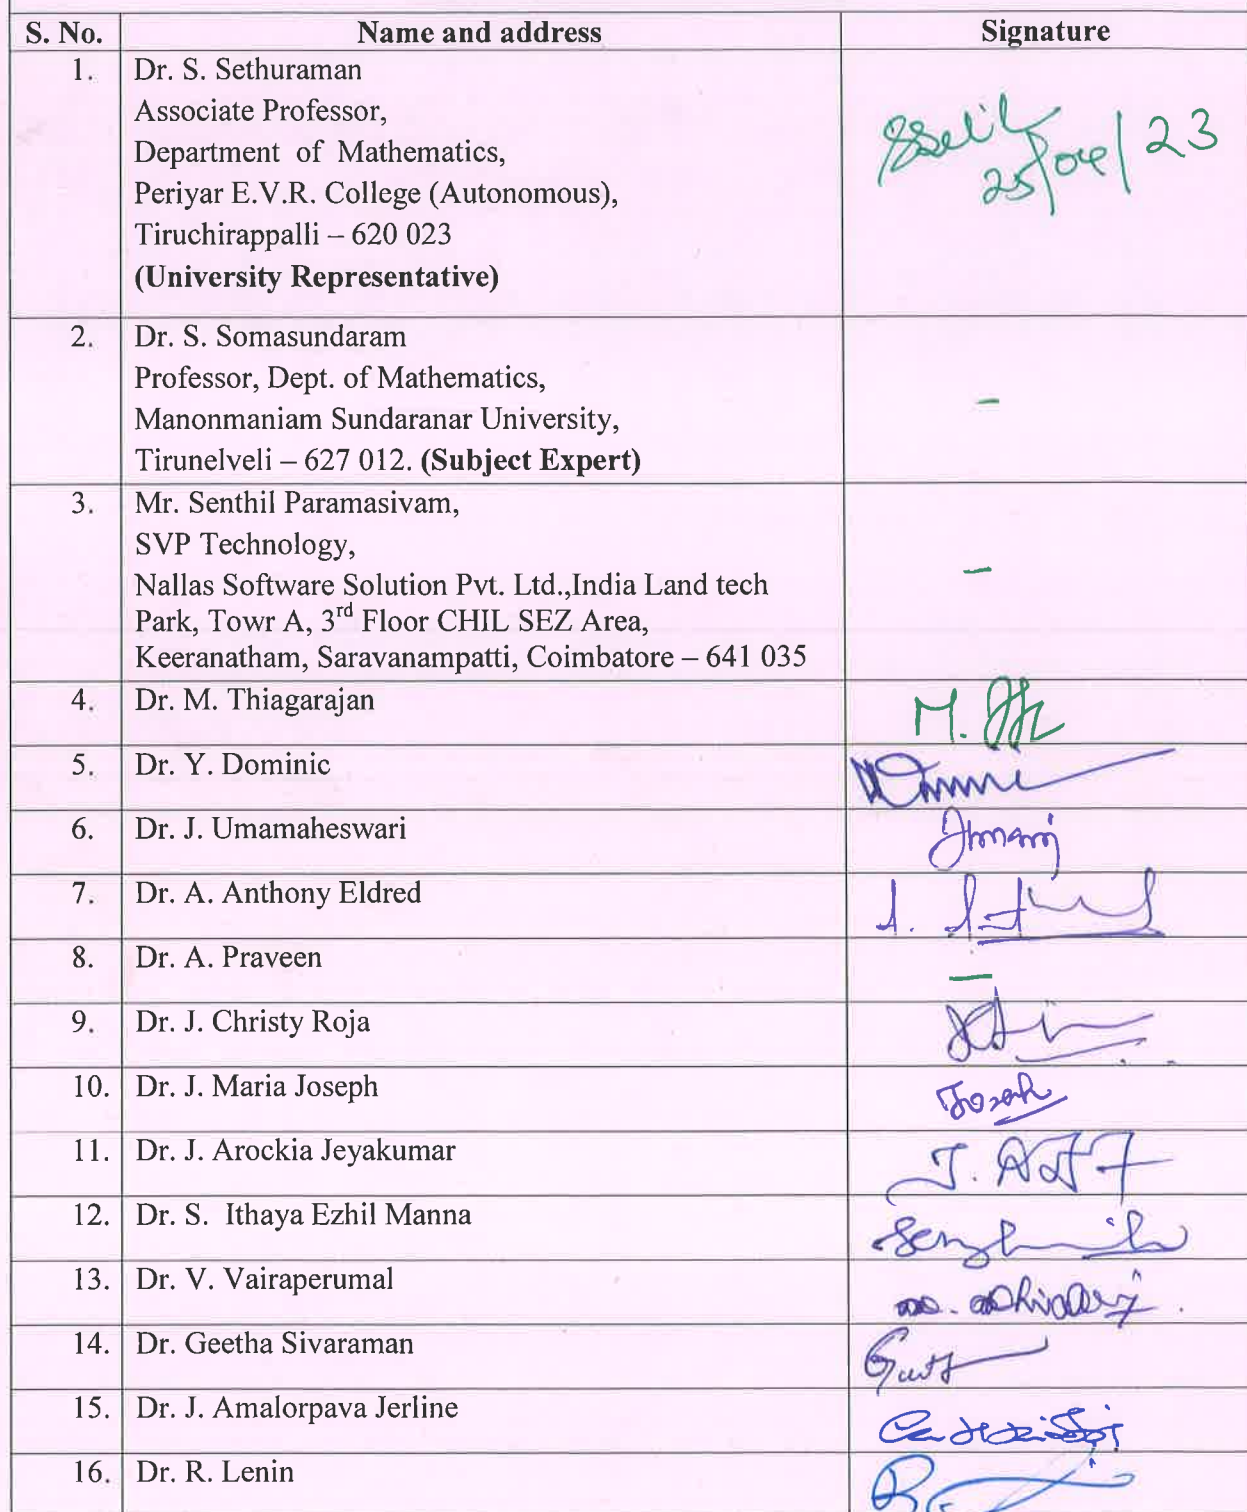 S. No. Name and address Signature
1. Dr. S. Sethuraman
Associate Professor,
Department of Mathematics,
Periyar E.V.R. College (Autonomous),
Tiruchirappalli – 620 023
(University Representative)
25/04/23
2. Dr. S. Somasundaram
Professor, Dept. of Mathematics,
Manonmaniam Sundaranar University,
Tirunelveli – 627 012. (Subject Expert)
–
3. Mr. Senthil Paramasivam,
SVP Technology,
Nallas Software Solution Pvt. Ltd.,India Land tech
Park, Towr A, 3rd Floor CHIL SEZ Area,
Keeranatham, Saravanampatti, Coimbatore – 641 035
–
4. Dr. M. Thiagarajan M.
5. Dr. Y. Dominic
6. Dr. J. Umamaheswari
7. Dr. A. Anthony Eldred
8. Dr. A. Praveen –
9. Dr. J. Christy Roja
10. Dr. J. Maria Joseph
11. Dr. J. Arockia Jeyakumar
12. Dr. S. Ithaya Ezhil Manna
13. Dr. V. Vairaperumal
14. Dr. Geetha Sivaraman
15. Dr. J. Amalorpava Jerline
16. Dr. R. Lenin